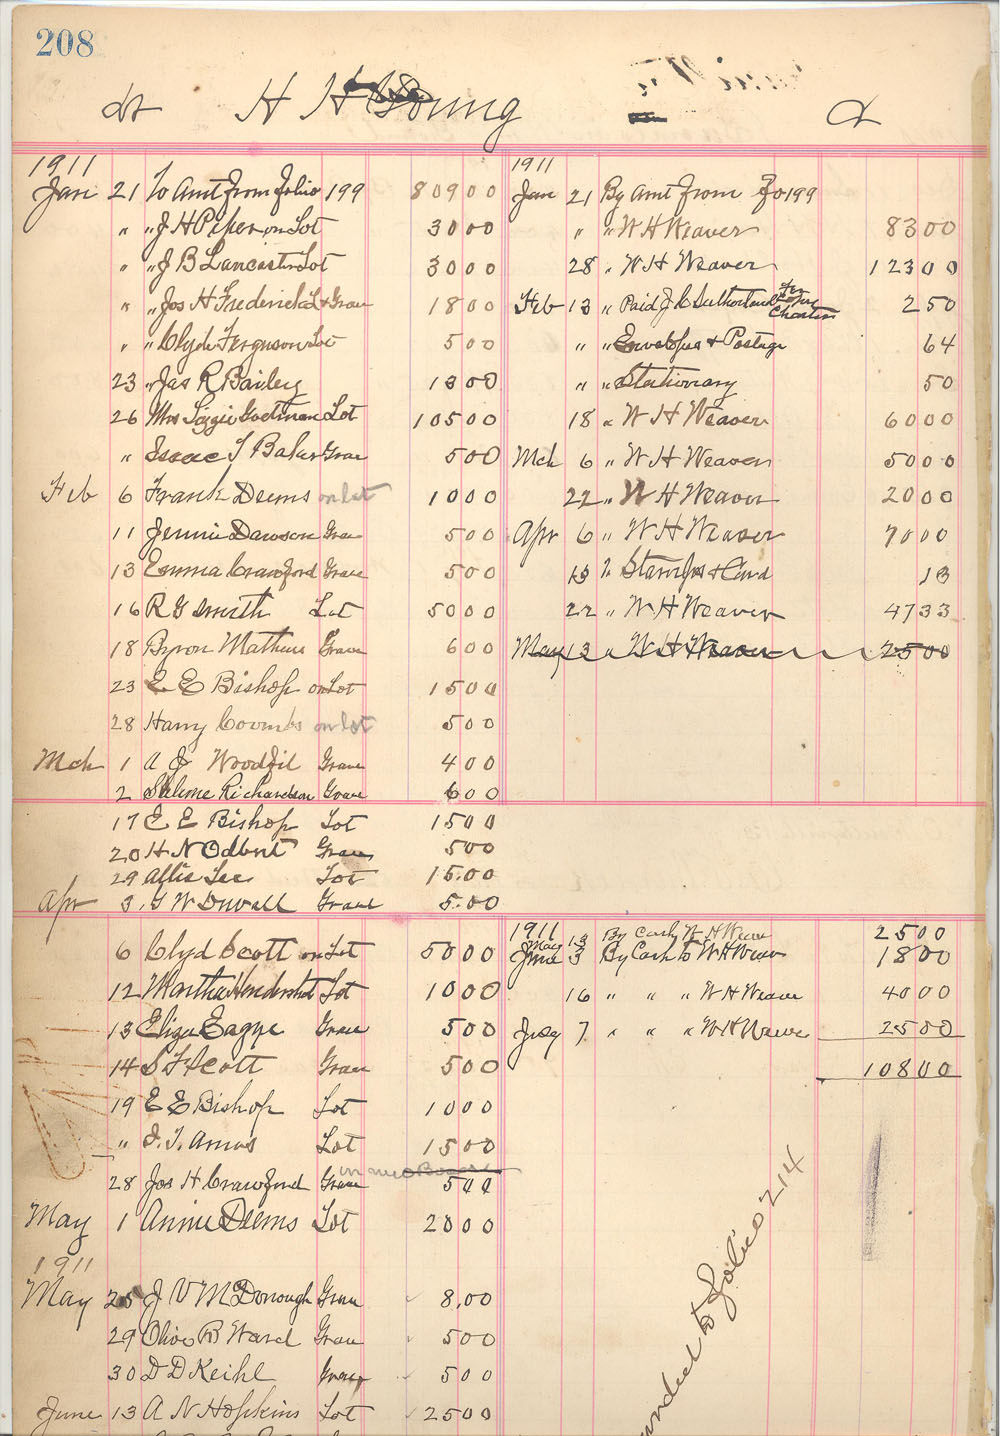 208
Dr H H Young Cr
1911
Jan 21 To Amt From Folio 199 809 00
" " J H Piper on Lot 30 00
" " J B Lancaster Lot 30 00
" " Jos H Frederick L & Grave 18 00
" " Clyde Ferguson Lot 5 00
23 " Jas R Bailey 10 00
26 Mrs Lizzie Goetman Lot 105 00
" Isaac T Baker Grave 5 00
Feb 6 Frank Deems on Lot 10 00
11 Jennie Dawson Grave 5 00
13 Emma Crawford Grave 5 00
16 R G Smith Lot 50 00
18 Byron Mathews Grave 6 00
23 E E Bishop on Lot 15 00
28 Harry Coombs on lot 5 00
Mch 1 A J Woodfil Grave 4 00
2 Richardson Grave 6 00
17 E E Bishop Lot 15 00
20 H N Odbert Grave 5 00
29 Allie Lee Lot 15.00
Apr 3 G W Duvall Grave 5.00
6 Clyd Scott on Lot 50 00
12 Martha Hendershot Lot 10 00
13 Eliza Eagye Grave 5 00
14 S F Scott Grave 5 00
19 E E Bishop Lot 10 00
" J. T. Amos Lot 15 00
28 Jos H Crawford Grave 5 00
May 1 Annie Deems Lot 20 00
1911
May 25 J V McDonough Grave 8.00
29 Olive B Ward Grave 5 00
30 D D Keihl Grave 5 00
June 13 A N Hopkins Lot 25 00
1911
Jan 21 By Amt From Fo 199
" " W H Weaver 83 00
28 " W H Weaver 123 00
Feb 13 " Paid J R Sutherland For Copy Charter 2 50
" " Envelopes & Postage 64
" " Stationary 50
18 " W H Weaver 60 00
Mch 6 " W H Weaver 50 00
22 " W H Weaver 20 00
Apr 6 " W H Weaver 70 00
13 " Stamps & Card 13
22 " W H Weaver 47 33
May 13 " W H Weaver 25 00
1911
May 13 By Cash W H Weaver 25 00
June 3 By Cash To W H Weaver 18 00
16 " " " W H Weaver 40 00
July 7 " " " W H Weaver 25 00
108 00
to Folio 214